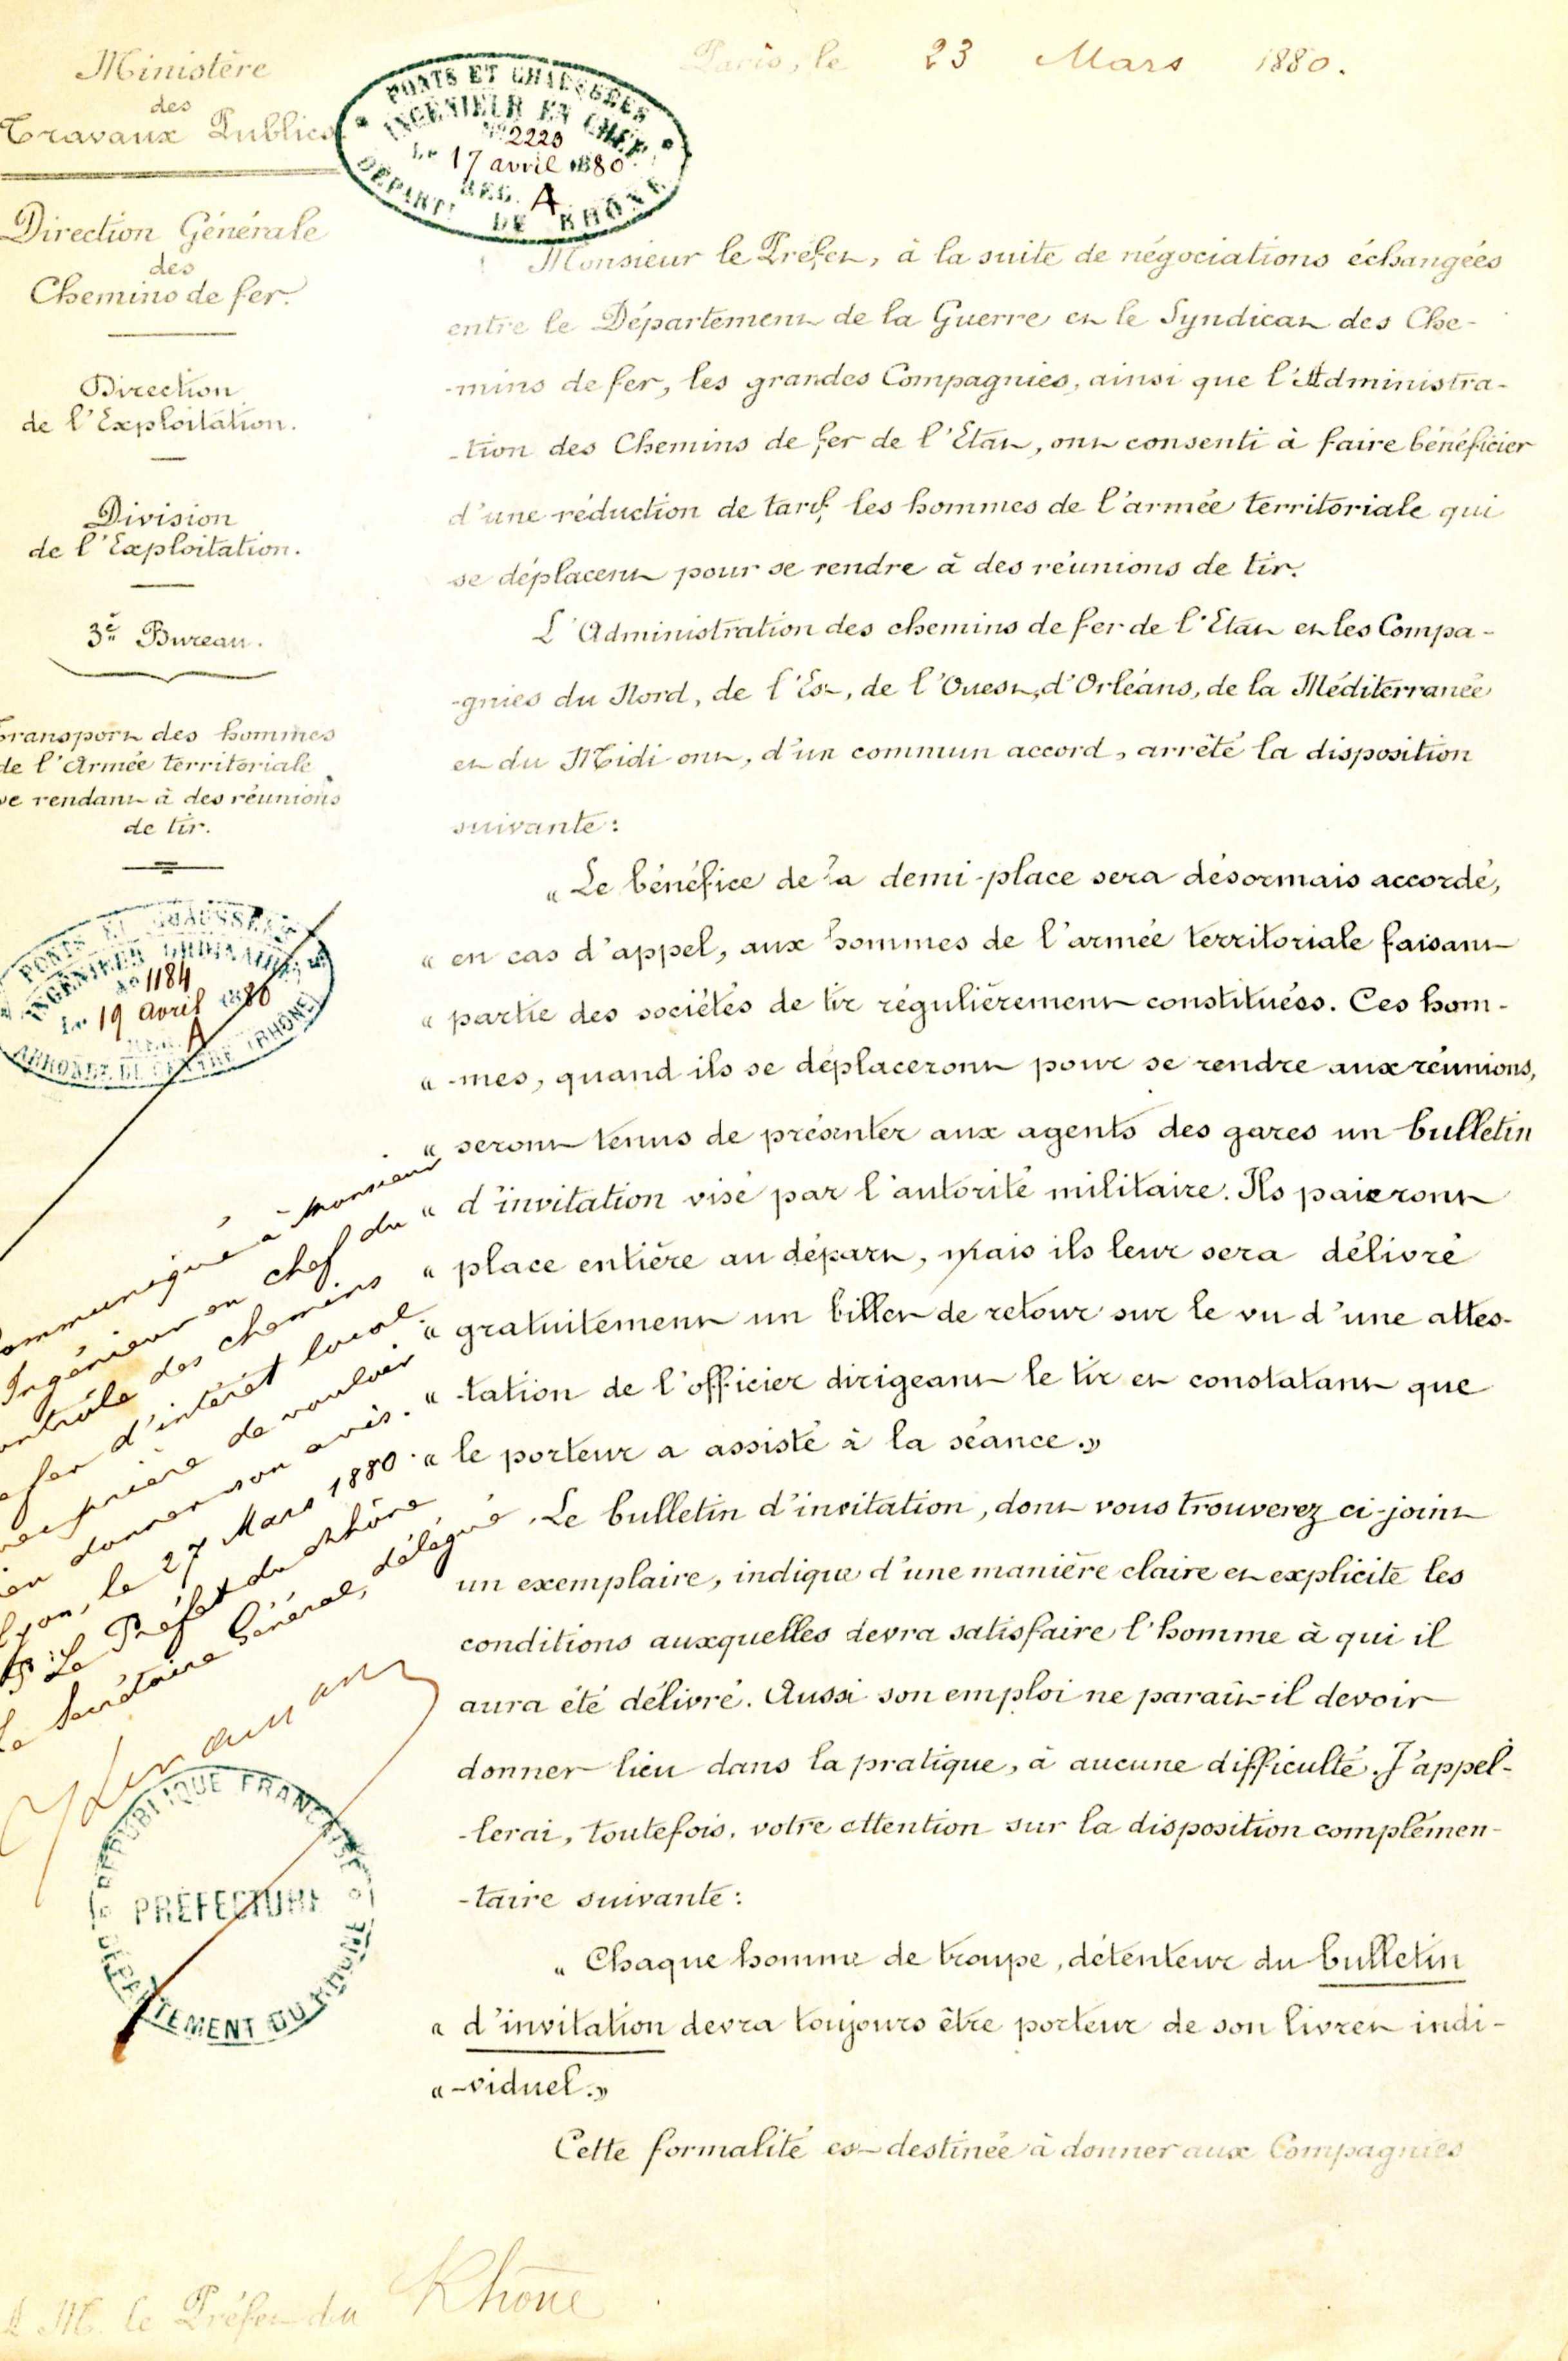 Ministère
des
Travaux Publics
Direction Générale
des
Chemins de fer.
Direction
de l'Exploitation.
Division
de l'Exploitation.
3e Bureau.
Transport des hommes
de l'Armée territoriale
se rendant à des réunions
de tir.
Paris, le 23 Mars 1880.
PONTS ET CHAUSSÉES
INGÉNIEUR EN CHEF
No 2223
Le 17 avril 1880
REG. A
DÉPART.t DU RHÔNE
Monsieur le Préfet, à la suite de négociations échangées
entre le Département de la Guerre et le Syndicat des Che-
-mins de fer, les grandes Compagnies, ainsi que l'Administra-
-tion des Chemins de fer de l'Etat, ont consenti à faire bénéficier
d'une réduction de tarif les hommes de l'armée territoriale qui
se déplacent pour se rendre à des réunions de tir.
L'Administration des chemins de fer de l'Etat et les Compa-
-gnies du Nord, de l'Est, de l'Ouest, d'Orléans, de la Méditerranée
et du Midi ont, d'un commun accord, arrêté la disposition
suivante:
« Le bénéfice de la demi-place sera désormais accordé,
« en cas d'appel, aux hommes de l'armée territoriale faisant
« partie des sociétés de tir régulièrement constituées. Ces hom-
« -mes, quand ils se déplaceront pour se rendre aux réunions,
« seront tenus de présenter aux agents des gares un bulletin
« d'invitation visé par l'autorité militaire. Ils paieront
« place entière au départ, mais ils leur sera délivré
« gratuitement un billet de retour sur le vu d'une attes-
« -tation de l'officier dirigeant le tir et constatant que
« le porteur a assisté à la séance.»
Le bulletin d'invitation, dont vous trouverez ci-joint
un exemplaire, indique d'une manière claire et explicite les
conditions auxquelles devra satisfaire l'homme à qui il
aura été délivré. Aussi son emploi ne paraît-il devoir
donner lieu dans la pratique, à aucune difficulté. J'appel-
-lerai, toutefois, votre attention sur la disposition complémen-
-taire suivante:
« Chaque homme de troupe, détenteur du bulletin
« d'invitation devra toujours être porteur de son livret indi-
« -viduel.»
Cette formalité est destinée à donner aux Compagnies
PONTS ET CHAUSSÉES
INGÉNIEUR ORDINAIRE
No 1184
Le 19 avril 1880
REG. A
ARRONDt DU CENTRE (RHÔNE)
Communiqué à Monsieur
Ingénieur en chef du
contrôle des chemins
de fer d'intérêt local
avec prière de vouloir
bien donner son avis.
Lyon, le 27 Mars 1880.
Le Préfet du Rhône
Le Secrétaire Général, délégué
RÉPUBLIQUE FRANÇAISE
PRÉFECTURE
DÉPARTEMENT DU RHÔNE
A M. le Préfet du Rhône